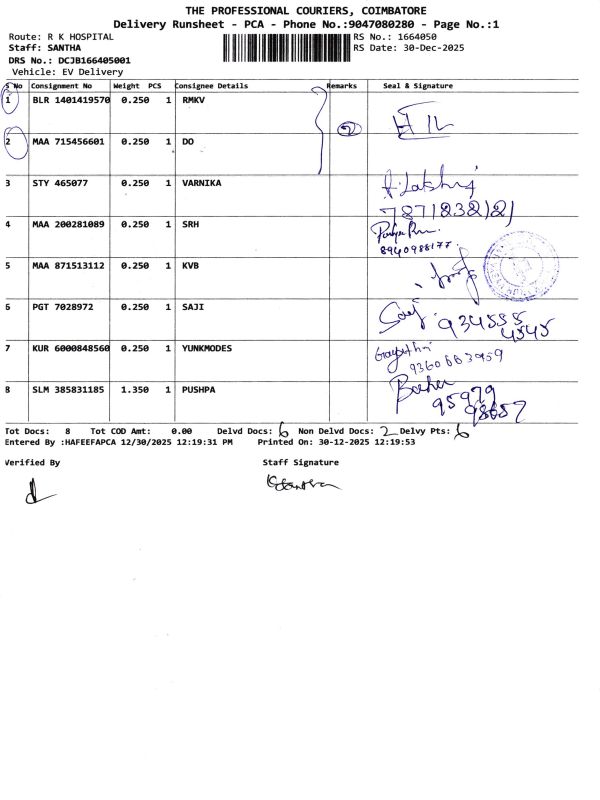 THE PROFESSIONAL COURIERS, COIMBATORE
Delivery Runsheet - PCA - Phone No.:9047080280 - Page No.:1
Route: R K HOSPITAL RS No.: 1664050
Staff: SANTHA RS Date: 30-Dec-2025
DRS No.: DCJB166405001
Vehicle: EV Delivery
S No Consignment No Weight PCS Consignee Details Remarks Seal & Signature
1 BLR 1401419570 0.250 1 RMKV
2 MAA 715456601 0.250 1 DO
3 STY 465077 0.250 1 VARNIKA
4 MAA 200281089 0.250 1 SRH
8940988177
5 MAA 871513112 0.250 1 KVB
6 PGT 7028972 0.250 1 SAJI
7 KUR 6000848560 0.250 1 YUNKMODES
9360663959
8 SLM 385831185 1.350 1 PUSHPA
95979
98657
Tot Docs: 8 Tot COD Amt: 0.00 Delvd Docs: 6 Non Delvd Docs: 2 Delvy Pts: 6
Entered By :HAFEEFAPCA 12/30/2025 12:19:31 PM Printed On: 30-12-2025 12:19:53
Verified By Staff Signature